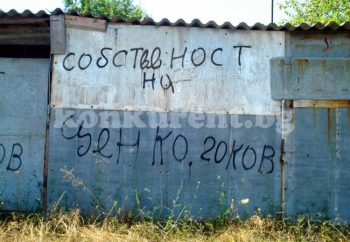 собственост
на
ценко, 20ков
ов
konkurent.bg